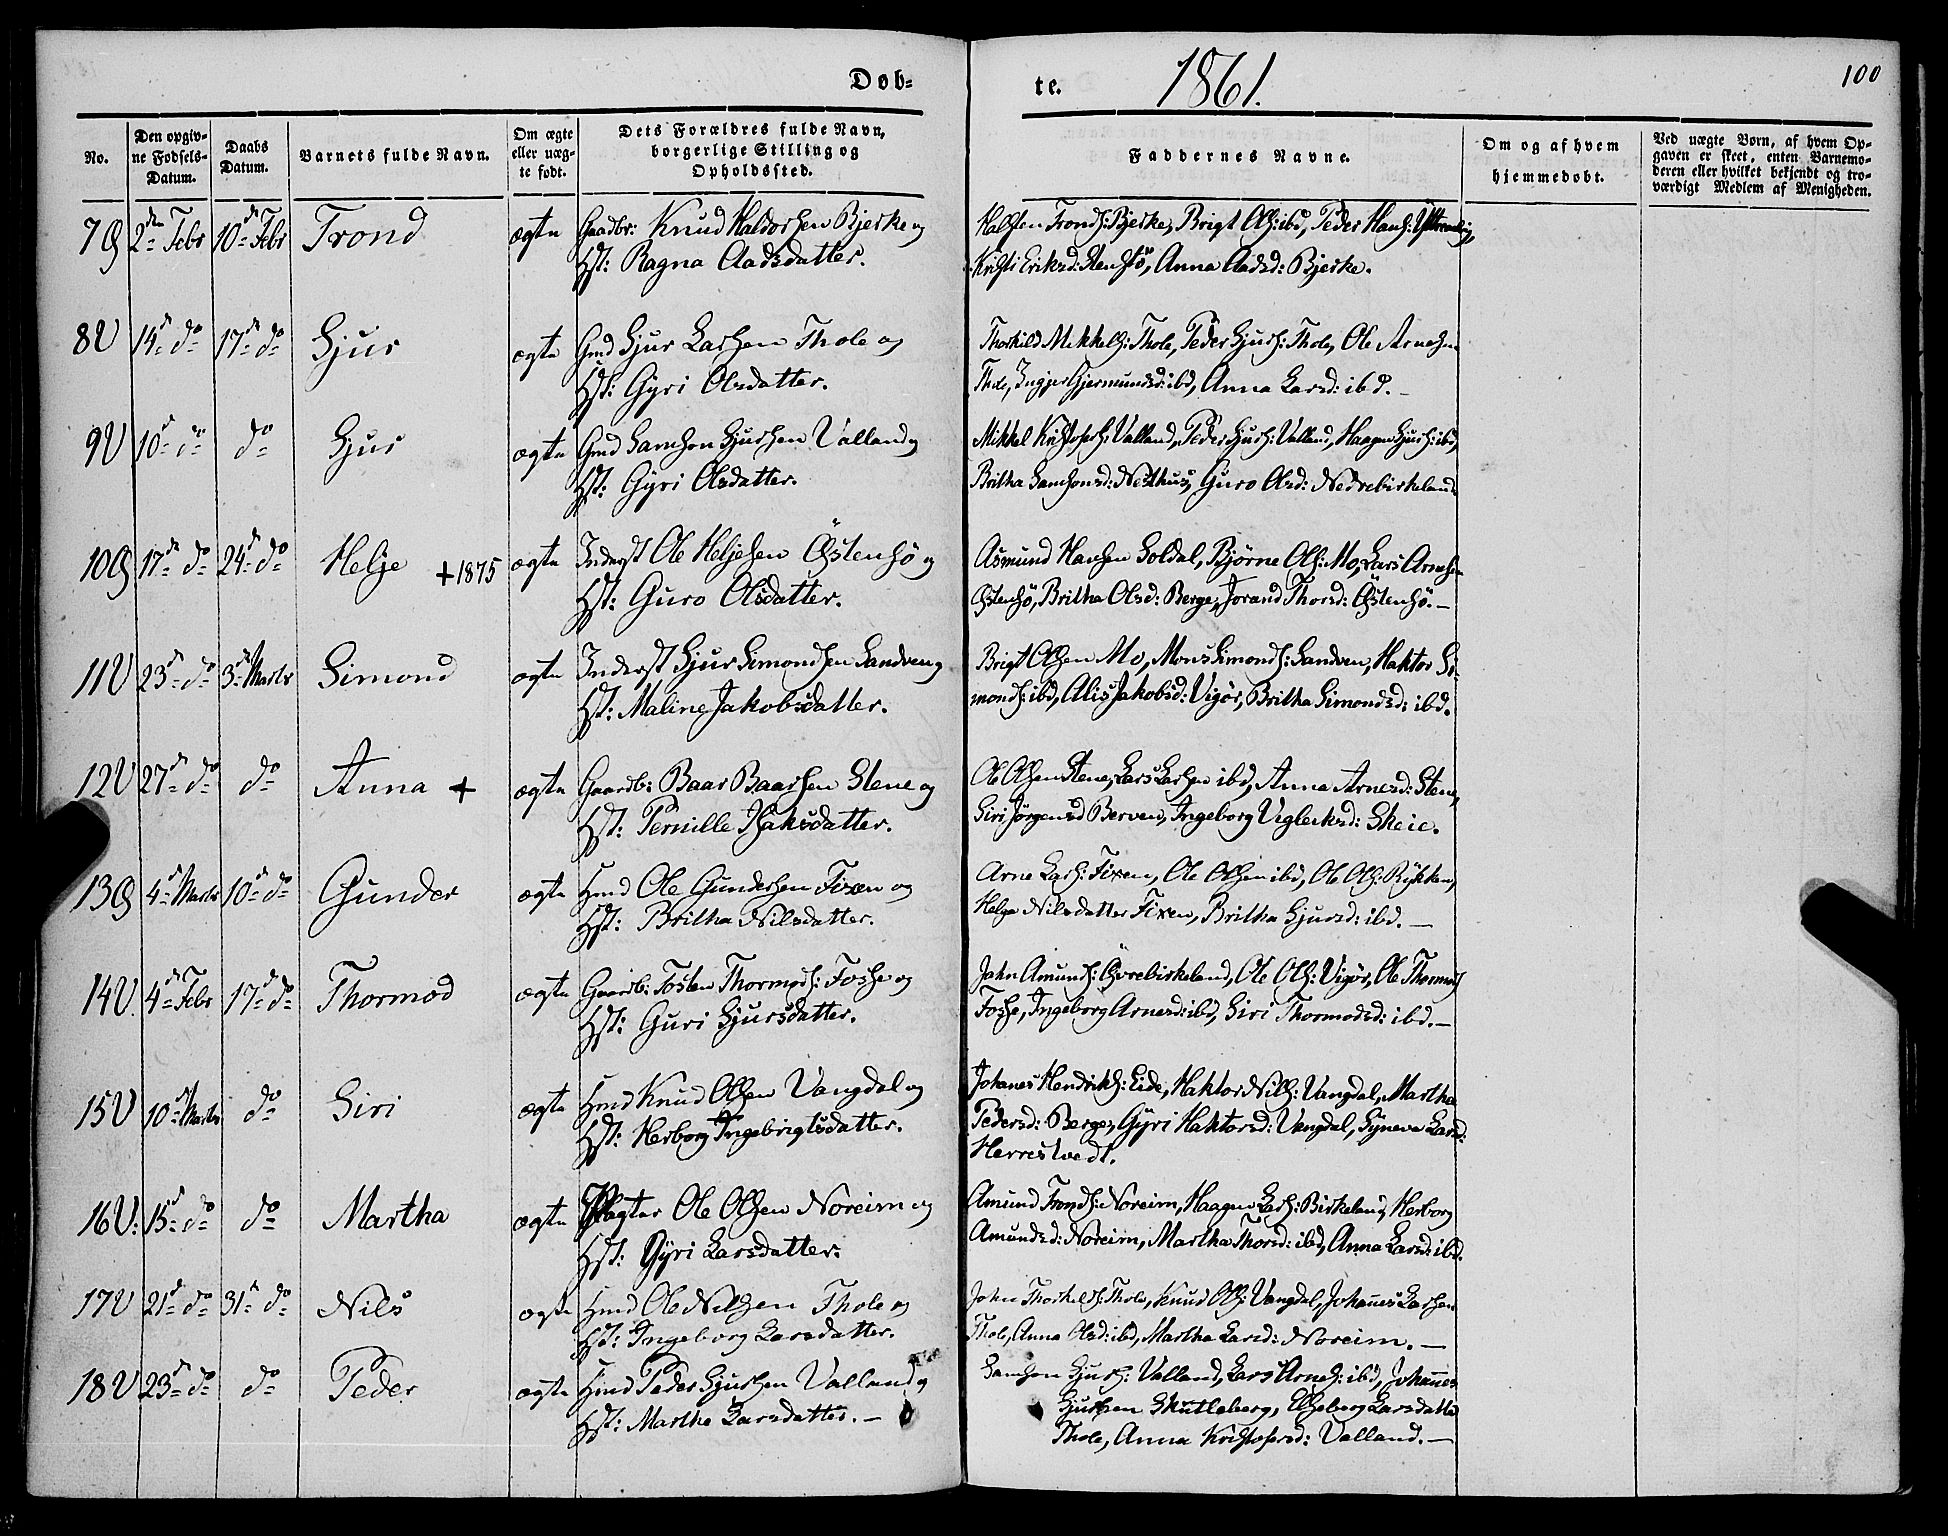 Døb=
te.
1861.
100
No.
Den opgiv=
ne Fødsels=
Datum.
Daabs
Datum.
Barnets fulde Navn.
Om ægte
eller uæg=
te født.
Dets Forældres fulde Navn,
borgerlige Stilling og
Opholdssted.
Faddernes Navne.
Om og af hvem
hjemmedøbt.
Ved uægte Børn, af hvem Op=
gaven er skeet, enten Barnemo=
deren eller hvilket bekjendt og tro=
værdigt Medlem af Menigheden.
7 2de Febr 10de Febr Trond ægte Gaadbr: Knud Haldorsen Bjerke og
Hst: Ragna Aadsdatter.
Halsten Tronds: Bjerke, Brigt Ols: ibd, Peder Hans:
Kristi Eriksd: Stensø, Anna Aadsd: Bjerke.
8V 14de do 17de do Sjur ægte Gmd Sjur Larsen Thole og
Hst: Gyri Olsdatter.
Thorkild Mikkels: Thole, Peder Sjurs: Thole, Ole Arnesen
Thole, Ingjer Gjermundsd: ibd, Anna Larsd: ibd.
9V 10de do do Sjur ægte Gmd Samson Sjursen Valland og
Hst: Gyri Olsdatter.
Mikkel Kristofers: Valland, Peder Sjurs: Valland, Haagen Sjurs: ibd,
Britha Samsonsd: Nesthus, Guro Olsd: Nedrebirkeland.
10 17de do 24de do Helje +1875 ægte Inderst Ole Heljesen Østensø og
Hst: Guro Olsdatter.
Asmund Hansen Soldal, Bjørne Ols: Mo, Lars Arnesen
Østensø, Britha Olsd: Berge, Jorand Thorsd: Østensø.
11V 23de do 3de Marts Simond ægte Inderst Sjur Simondsen Sandven og
Hst: Maline Jakobsdatter.
Brigt Olsen Mo, Mons Simonds: Sandven, Haktor Si-
monds: ibd, Alis Jakobsd: Vigør, Britha Simondsd: ibd.
12V 27de do do Anna + ægte Gaardb: Baar Baarsen Stene og
Hst: Pernille Isaksdatter.
Ole Olsen Stene, Lars Larsen ibd, Anna Arnesd: Stene,
Siri Jørgensd Berven, Ingeborg Vigleiksd: Skeie.
13 4de Marts 10de do Gunder ægte Hmd Ole Gundersen Fixen og
Hst: Britha Nilsdatter.
Arne Lars: Fixen, Ole Olsen ibd, Ole Ols: Rykken,
Helga Nilsdatter Fixen, Britha Sjursd: ibd.
14V. 4de Febr 17de do Thormod ægte Gaardb: Tosten Thormods: Fosse og
Hst: Guri Sjursdatter.
Jahn Amunds: Øvrebirkeland, Ole Ols: Vigør, Ole Thormods
Fosse, Ingeborg Arnesd: ibd, Siri Thormodsd: ibd.
15V 10de Marts do Siri ægte Hmd Knud Olsen Vangdal og
Hst: Herborg Ingebrigtsdatter.
Johanes Hendriks: Eide, Haktor Nils: Vangdal, Martha
Pedersd: Berge, Gyri Haktorsd: Vangdal, Syneva Larsd:
Herrestvedt.
16V: 15de do do Martha ægte Plagter Ole Olsen Noreim og
Hst: Gyri Larsdatter.
Amund Tronds: Noreim, Haagen Lars: Birkeland, Herborg
Amundsd: Noreim, Martha Thorsd: ibd, Anna Larsd: ibd.
17V 21de do 31de do Nils ægte Hmd Ole Nilsen Thole og
Hst: Ingeborg Larsdatter.
John Thorkilds: Thole, Knud Ols: Vangdal, Johannes Larsen
Thole, Anna Olsd: ibd, Martha Larsd: Noreim.
18V 23de do do Peder ægte Hmd Peder Sjursen Valland og
Hst: Martha Larsdatter.
Samson Sjurs: Valland, Lars Arnes: ibd, Johannes
Sjursen Skutleberg, Elseborg Larsdatter
Thole, Anna Kristofersd: Valland.